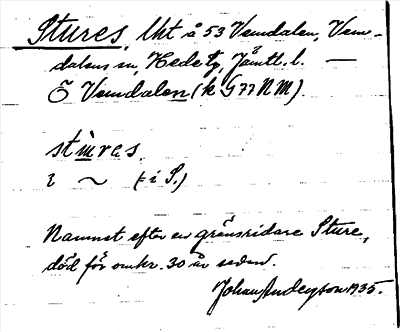 Stures, lht å 53 Vemdalen, Vem-
dalens sn, Hede tg, Jämtl. l. —
Ö Vemdalen (k G 77 N M).
stùres.
i ~ (= i S.)
Namnet efter en gränsridare Sture,
död för omkr. 30 år sedan.
Johan Anderson 1935.